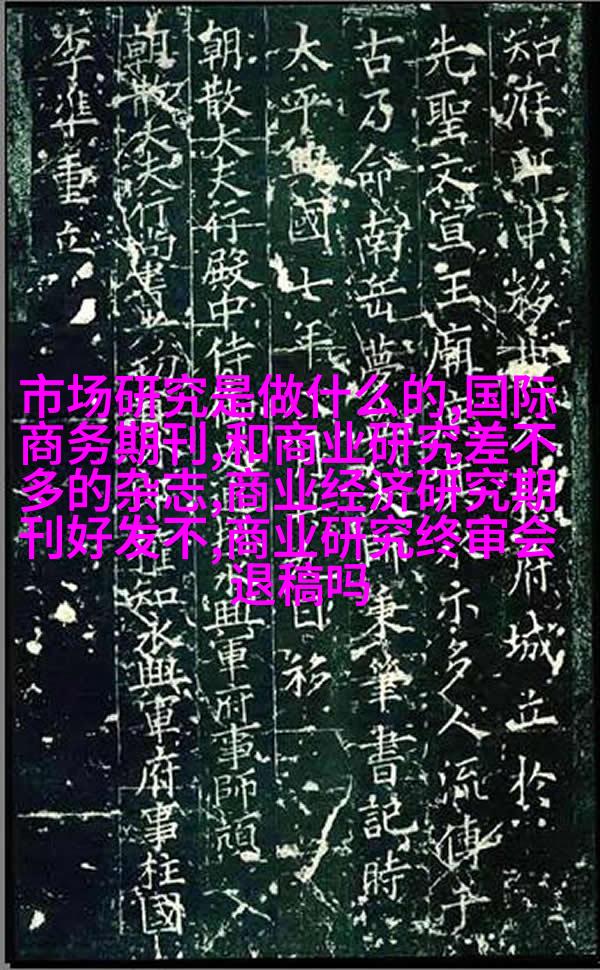 市场研究是做什么的,国际
商务期刊,和商业研究差不
多的杂志,商业经济研究期
刊好发不,商业研究终审会
退稿吗
知 申移 府城立於
先聖文宣王廟 示多人流傳于
古乃命南岳夢 秉筆書記時
太平興國七年 月 日移
朝散大夫行殿中侍 永興軍府事師頏
朝散大夫行尚書 知永興軍府事柱國
李準重立